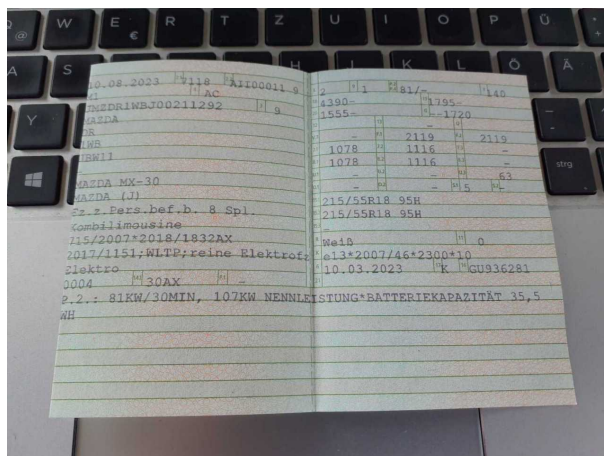 W E R T Z U I O P Ü
@ €
A S H J K L Ö Ä
Y
strg
10.08.2023 7118 AII00011 9
M1 AC
JMZDR1WBJ00211292 9
MAZDA
DR
1WB
1BW11
MAZDA MX-30
MAZDA (J)
Fz.z.Pers.bef.b. 8 Spl.
Kombilimousine
715/2007*2018/1832AX
2017/1151;WLTP;reine Elektrofz
Elektro
0004 30AX –
P.2.: 81KW/30MIN, 107KW NENNLEISTUNG*BATTERIEKAPAZITÄT 35,5
WH
2 1 81/– 140
4390– 1795–
1555– –1720
– –
– 2119 2119
1078 1116 –
1078 1116 –
– – 63
– – 5 –
215/55R18 95H
215/55R18 95H
–
Weiß 0
e13*2007/46*2300*10
10.03.2023 K GU936281